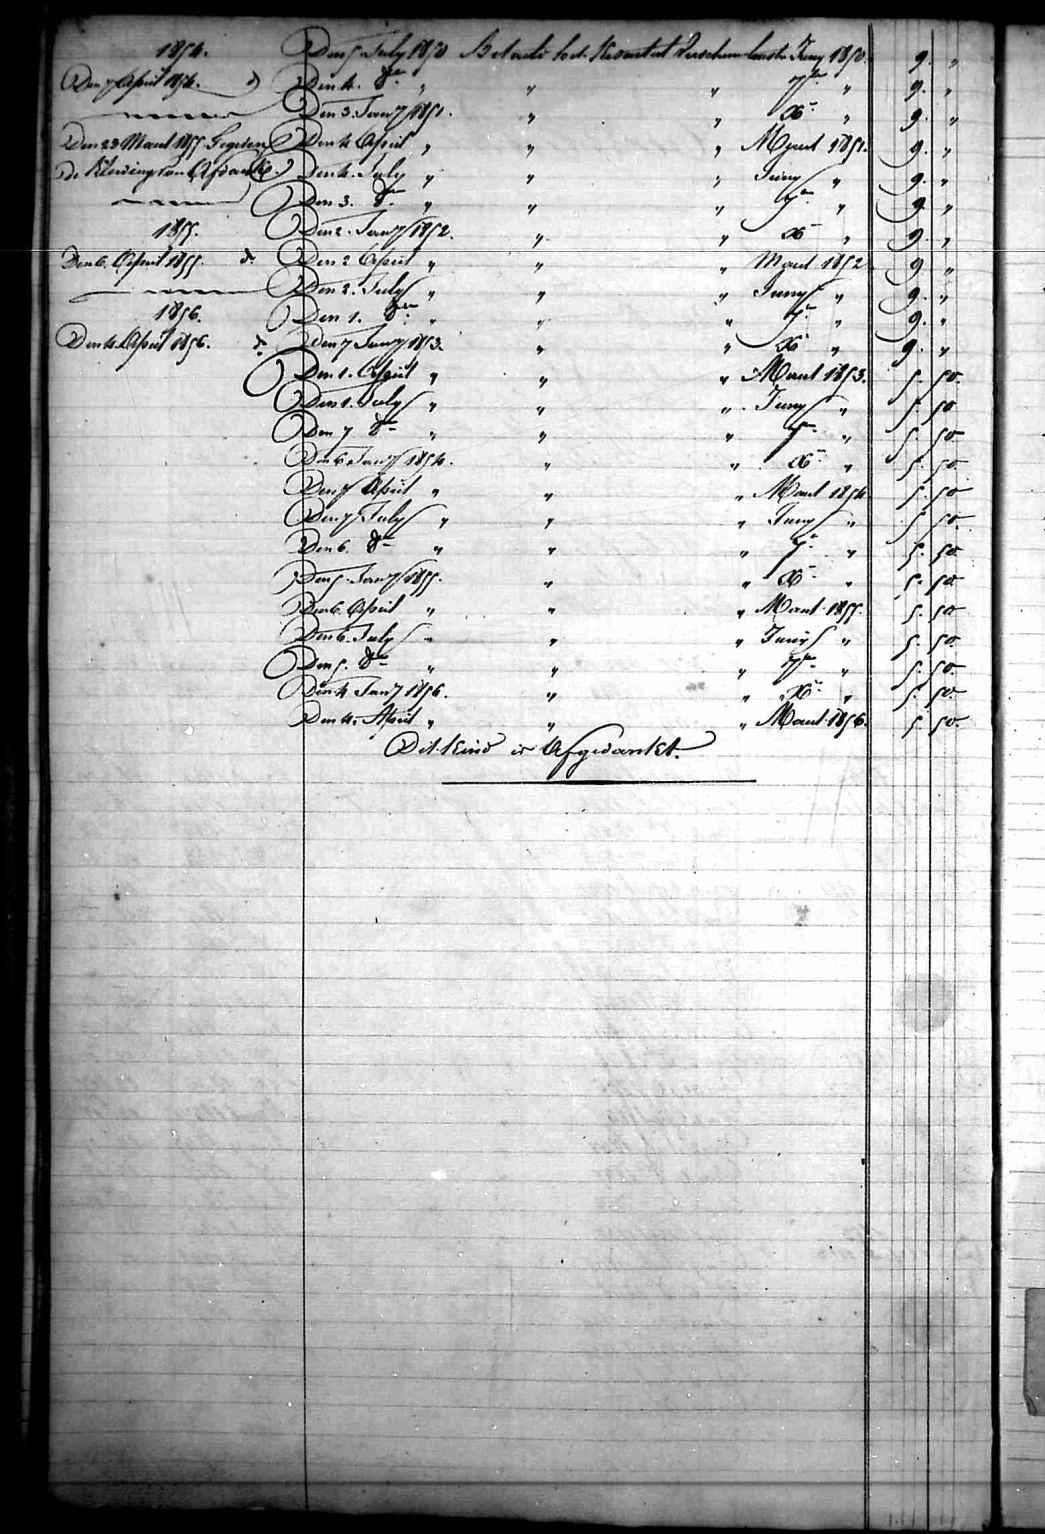 1854.
Den 7 April 1854. d
Den 23 Maart 1855. Gegeven
de Kleeding van Afdank
1855.
Den 6. April 1855. d.
1856.
Den 4. April 1856. d.
Den 5 July 1850 Betaald het Kwartaal Verschenen Juny 1850. 9. "
Den 4. 8br " " " 7br " 9. "
Den 3. Jany 1851. " " Xbr " 9. "
Den 4 April " " " Maart 1851. 9. "
Den 4. July " " " Juny " 9. "
Den 3. 8br " " " 7br " 9. "
Den 2. Jany 1852. " " Xbr " 9. "
Den 2 April " " " Maart 1852 9. "
Den 2. July " " " Juny " 9. "
Den 1. 8br " " " 7br " 9. "
Den 7 Jany 1853. " " Xbr " 9. "
Den 1. April " " " Maart 1853. 5. 50.
Den 1. July " " " Juny " 5. 50
Den 7 8br " " " 7br " 5. 50
Den 6 Jany 1854. " " Xbr " 5. 50.
Den 7 April " " " Maart 1854. 5. 50
Den 7 July " " " Juny " 5. 50.
Den 6. 8br " " " 7br " 5. 50.
Den 5. Jany 1855. " " Xbr " 5. 50
Den 6. April " " " Maart 1855. 5. 50
Den 6. July " " " Juny " 5. 50.
Den 5. 8br " " " 7br " 5. 50.
Den 4 Jany 1856. " " Xbr " 5. 50.
Den 4. April " " " Maart 1856. 5. 50.
Dit Kind is Afgedankt.